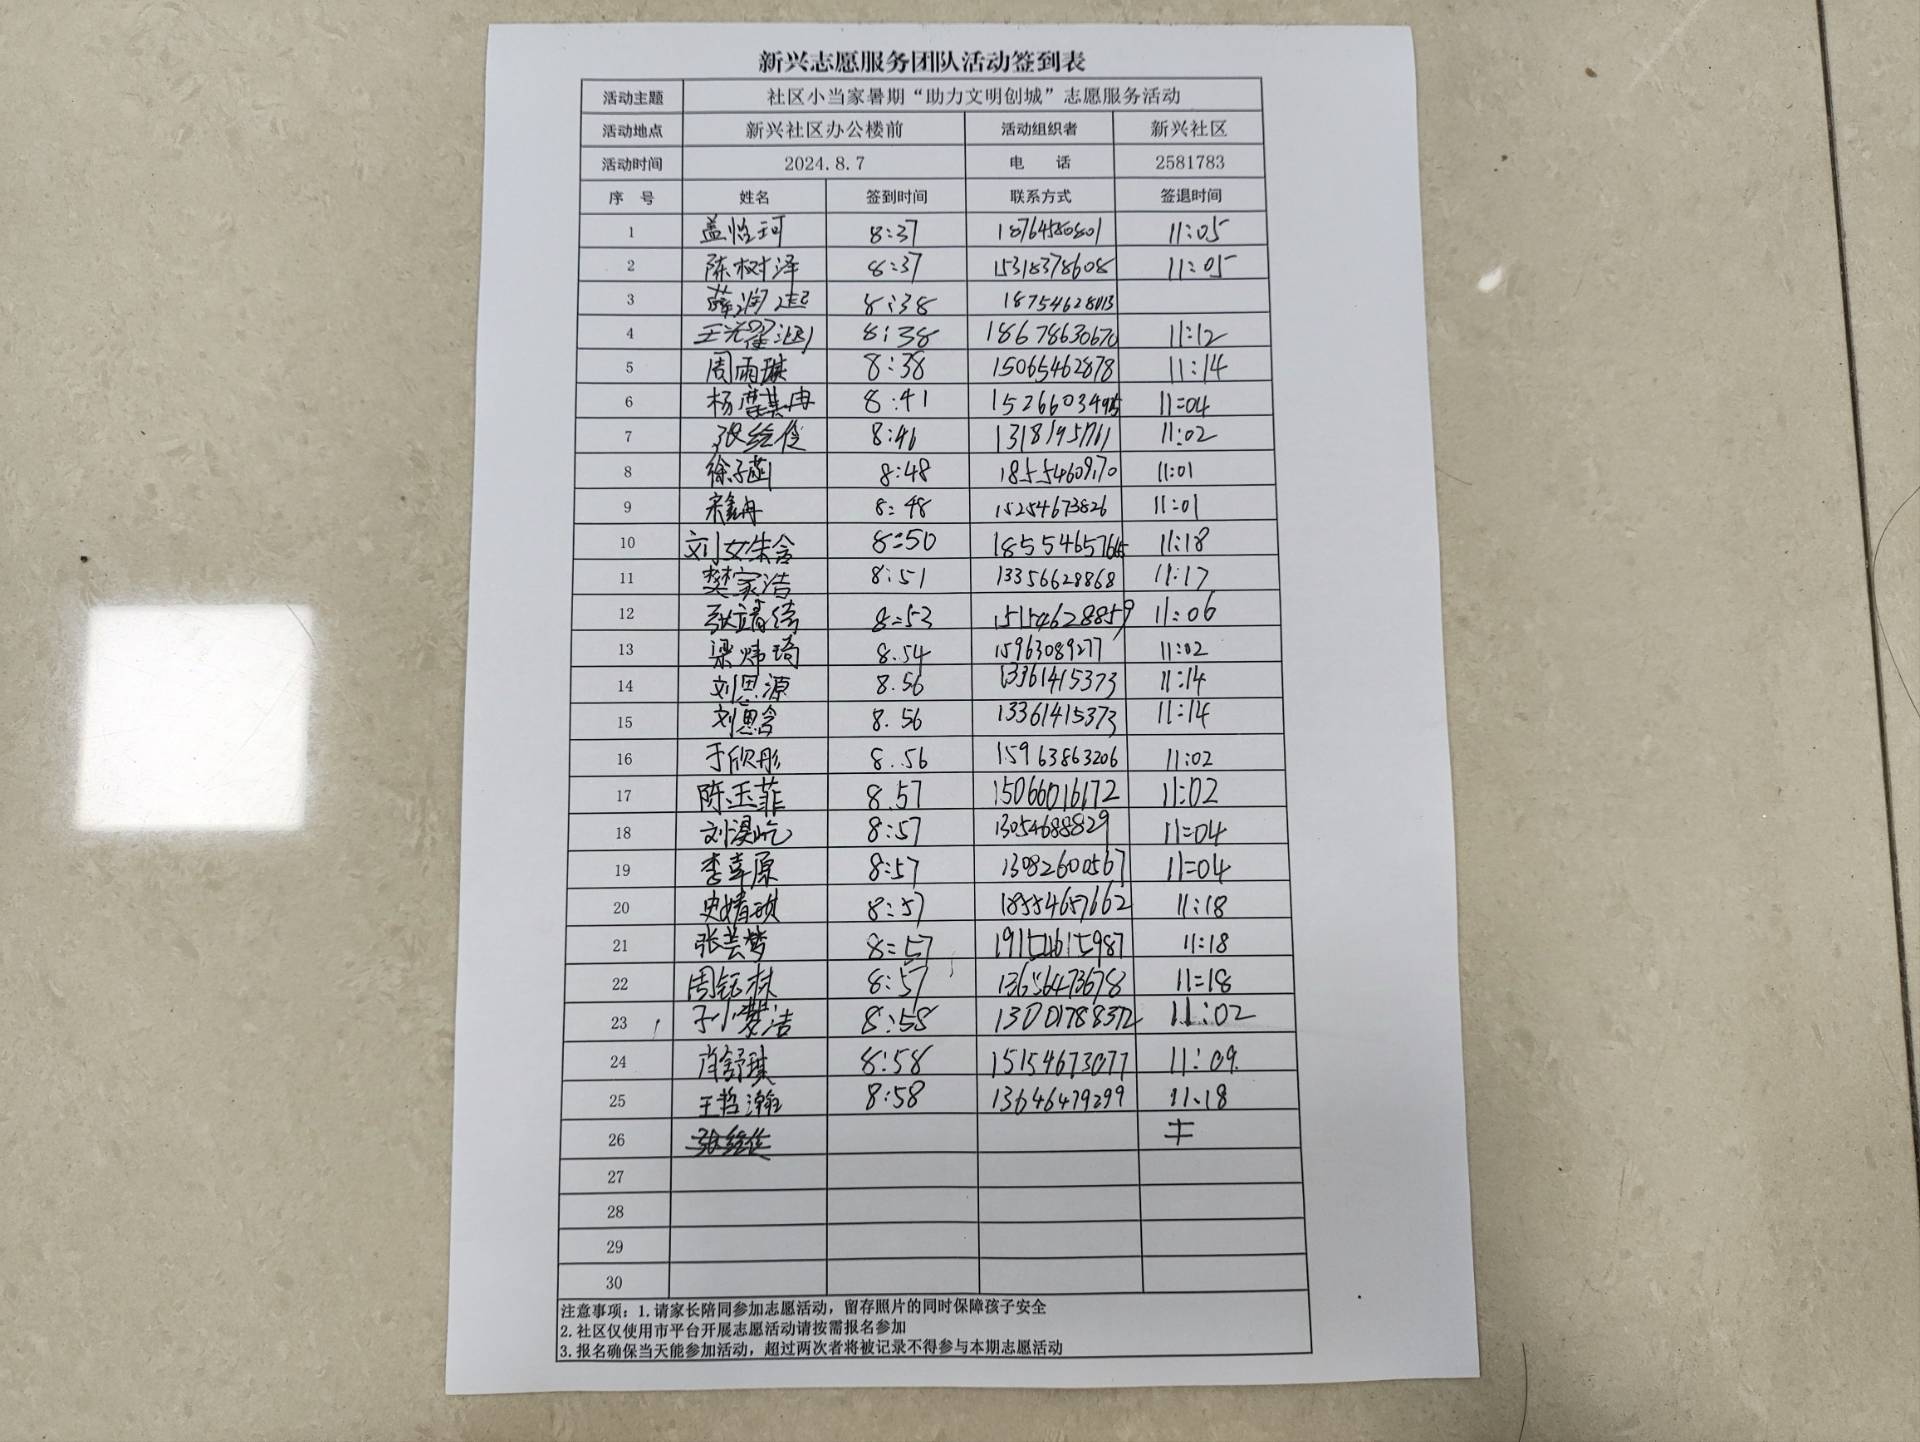 新兴志愿服务团队活动签到表
活动主题 社区小当家暑期“助力文明创城”志愿服务活动
活动地点 新兴社区办公楼前 活动组织者 新兴社区
活动时间 2024.8.7 电 话 2581783
序 号 姓名 签到时间 联系方式 签退时间
1 盖怡珂 8:37 18764580801 11:05
2 陈树泽 8:37 15318378608 11:05
3 薛润起 8:38 18754628013
4 8:38 18678630670 11:12
5 周雨琪 8:38 15065462878 11:14
6 8:41 11:04
7 张绘俊 8:46 11:02
8 徐子菡 8:48 18554609170 11:01
9 8:48 15254673826 11:01
10 8:50 11:18
11 樊家浩 8:51 13356628868 11:17
12 张靖绮 8:53 15154628859 11:06
13 梁炜琦 8.54 15963089277 11:02
14 刘思源 8.56 13361415373 11:14
15 刘思含 8.56 13361415373 11:14
16 于欣彤 8.56 15963863206 11:02
17 陈玉菲 8.57 15066016172 11:02
18 8:57 13054688829 11:04
19 李幸原 8:57 13082600567 11:04
20 史婧琪 8:57 18554657662 11:18
21 张芸梦 8:57 19154615987 11:18
22 周钰林 8:57 13656473678 11:18
23 8:58 13001788372 11:02
24 肖舒琪 8:58 15154673077 11:09
25 王哲瀚 8:58 13646479299 11.18
26
27
28
29
30
注意事项：1.请家长陪同参加志愿活动，留存照片的同时保障孩子安全
2.社区仅使用市平台开展志愿活动请按需报名参加
3.报名确保当天能参加活动，超过两次者将被记录不得参与本期志愿活动